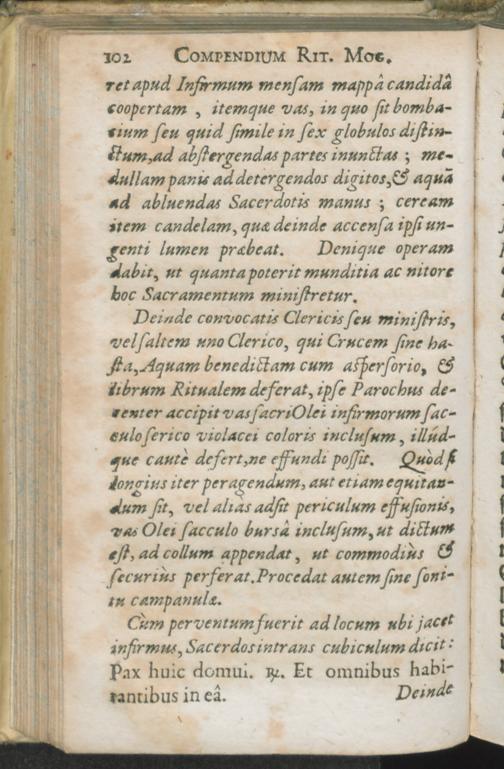 102 COMPENDIUM RIT. MOG.
ret apud Infirmum mensam mappâ candidâ
coopertam , itemque vas, in quo sit bomba-
cium seu quid simile in sex globulos distin-
ctum, ad abstergendas partes inunctas ; me-
dullam panis ad detergendos digitos, & aquā
ad abluendas Sacerdotis manus ; ceream
item candelam, quæ deinde accensa ipsi un-
genti lumen præbeat. Denique operam
dabit, ut quanta poterit munditia ac nitore
hoc Sacramentum ministretur.
Deinde convocatis Clericis seu ministris,
vel saltem uno Clerico, qui Crucem sine ha-
sta, Aquam benedictam cum aspersorio, &
librum Ritualem deferat, ipse Parochus de-
center accipit vas sacri Olei infirmorum sac-
culo serico violacei coloris inclusum, illúd-
que cautè defert, ne effundi possit. Quòd si
longius iter peragendum, aut etiam equitan-
dum sit, vel aliàs adsit periculum effusionis,
vas Olei sacculo bursâ inclusum, ut dictum
est, ad collum appendat, ut commodiùs &
securiùs perferat. Procedat autem sine soni-
tu campanulæ.
Cùm perventum fuerit ad locum ubi jacet
infirmus, Sacerdos intrans cubiculum dicit:
Pax huic domui. ℟. Et omnibus habi-
tantibus in eâ. Deinde